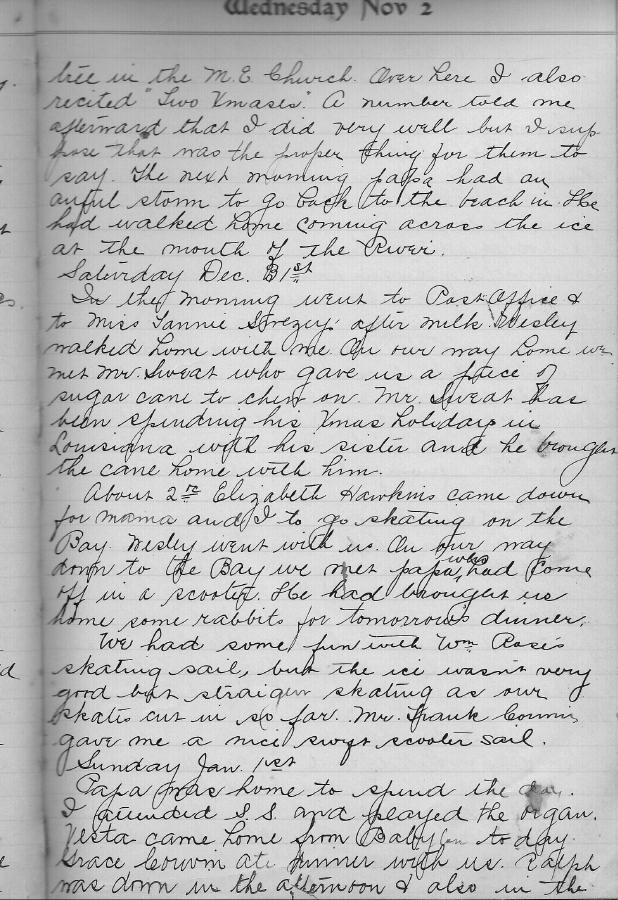 Wednesday Nov 2
tree in the M.E. Church. Over here I also
recited "Two Xmases". A number told me
afterward that I did very well but I sup
pose that was the proper thing for them to
say. The next morning papa had an
awful storm to go back to the beach in. He
had walked home coming across the ice
at the mouth of the River.
Saturday Dec. 31st
In the morning went to Post Office &
to Miss Tannie after milk. Wesley
walked home with me. On our way home we
met Mr. Sweat who gave us a piece of
sugar cane to chew on. Mr. Sweat has
been spending his Xmas holidays in
Louisiana with his sister and he brought
the cane home with him.
About 2 Elizabeth Hawkins came down
for mama and I to go skating on the
Bay. Wesley went with us. On our way
down to the Bay we met papa, who had come
off in a scooter. He had brought us
home some rabbits for tomorrow's dinner.
We had some fun with Wm Rose's
skating sail, but the ice wasn't very
good but straight skating as our
skates cut in so far. Mr. Frank Corwin
gave me a nice swift scooter sail.
Sunday Jan. 1st
Papa was home to spend the day.
I attended S.S. and played the organ.
Vesta came home from Babylon to day.
Grace Corwin ate dinner with us. Ralph
was down in the afternoon & also in the